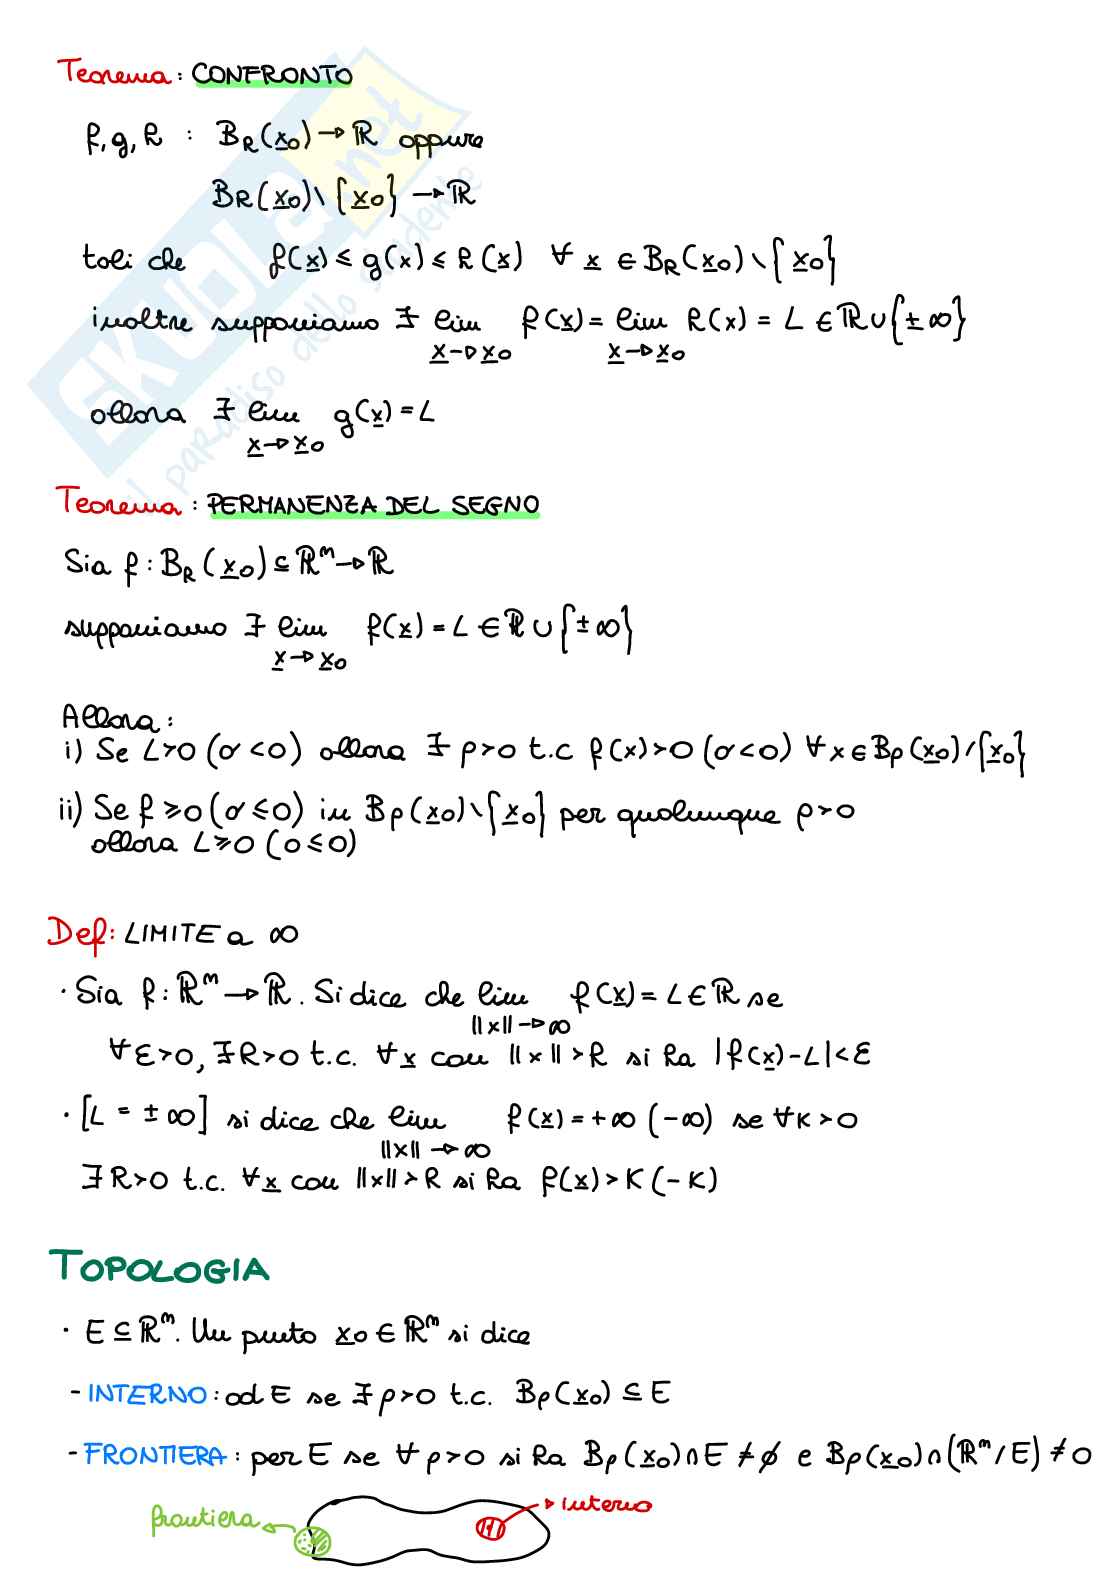 Teorema: CONFRONTO
f, g, h : B_R(x_0) → ℝ oppure
B_R(x_0) \ {x_0} → ℝ
tali che f(x) ≤ g(x) ≤ h(x) ∀ x ∈ B_R(x_0) \ {x_0}
inoltre supponiamo ∃ lim f(x) = lim h(x) = L ∈ ℝ ∪ {± ∞}
x → x_0 x → x_0
allora ∃ lim g(x) = L
x → x_0
Teorema: PERMANENZA DEL SEGNO
Sia f : B_R(x_0) ⊆ ℝ^m → ℝ
supponiamo ∃ lim f(x) = L ∈ ℝ ∪ {± ∞}
x → x_0
Allora:
i) Se L>0 (o <0) allora ∃ ρ>0 t.c f(x)>0 (o <0) ∀ x ∈ B_ρ(x_0) / {x_0}
ii) Se f ≥0 (o ≤0) in B_ρ(x_0) \ {x_0} per qualunque ρ>0
allora L≥0 (o ≤0)
Def: LIMITE a ∞
· Sia f : ℝ^m → ℝ. Si dice che lim f(x) = L ∈ ℝ se
||x|| → ∞
∀ ε>0, ∃ R>0 t.c. ∀ x con ||x|| > R si ha |f(x)-L|<ε
· [L = ± ∞] si dice che lim f(x) = +∞ (-∞) se ∀ K > 0
||x|| → ∞
∃ R>0 t.c. ∀ x con ||x|| > R si ha f(x) > K (- K)
TOPOLOGIA
· E ⊆ ℝ^m. Un punto x_0 ∈ ℝ^m si dice
- INTERNO: ad E se ∃ ρ>0 t.c. B_ρ(x_0) ⊆ E
- FRONTIERA: per E se ∀ ρ>0 si ha B_ρ(x_0) ∩ E ≠ ∅ e B_ρ(x_0) ∩ (ℝ^m / E) ≠ 0
interno
frontiera
SKUOLA.net
il paradiso dello studente